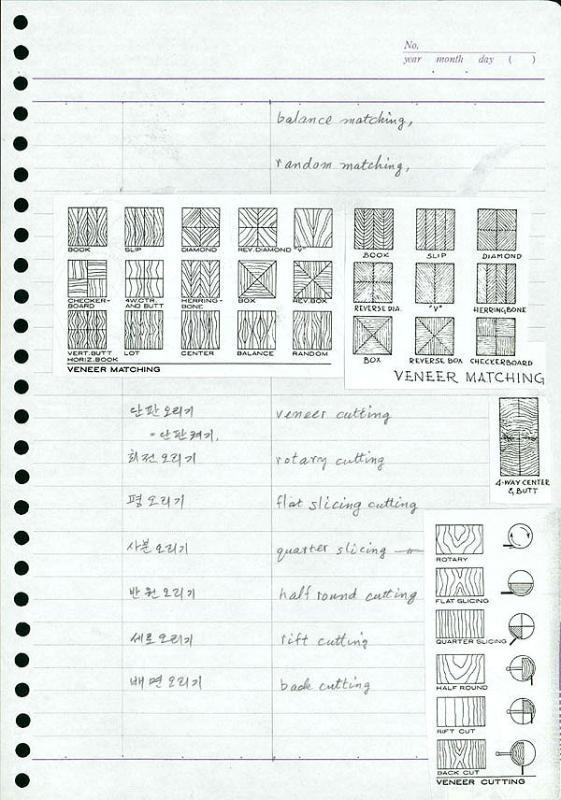 No.
year month day ( )
balance matching,
random matching,
BOOK SLIP DIAMOND REV. DIAMOND "V"
CHECKER-BOARD 4W.CTR. AND BUTT HERRING-BONE BOX REV. BOX
VERT. BUTT HORIZ. BOOK LOT CENTER BALANCE RANDOM
VENEER MATCHING
BOOK SLIP DIAMOND
REVERSE DIA. "V" HERRINGBONE
BOX REVERSE BOX CHECKERBOARD
VENEER MATCHING
단판오리기 veneer cutting
= 단판켜기.
회전오리기 rotary cutting
평오리기 flat slicing cutting
사분오리기 quarter slicing
반원오리기 half round cutting
세로오리기 rift cutting
배면오리기 back cutting
4-WAY CENTER
& BUTT
ROTARY
FLAT SLICING
QUARTER SLICING
HALF ROUND
RIFT CUT
BACK CUT
VENEER CUTTING